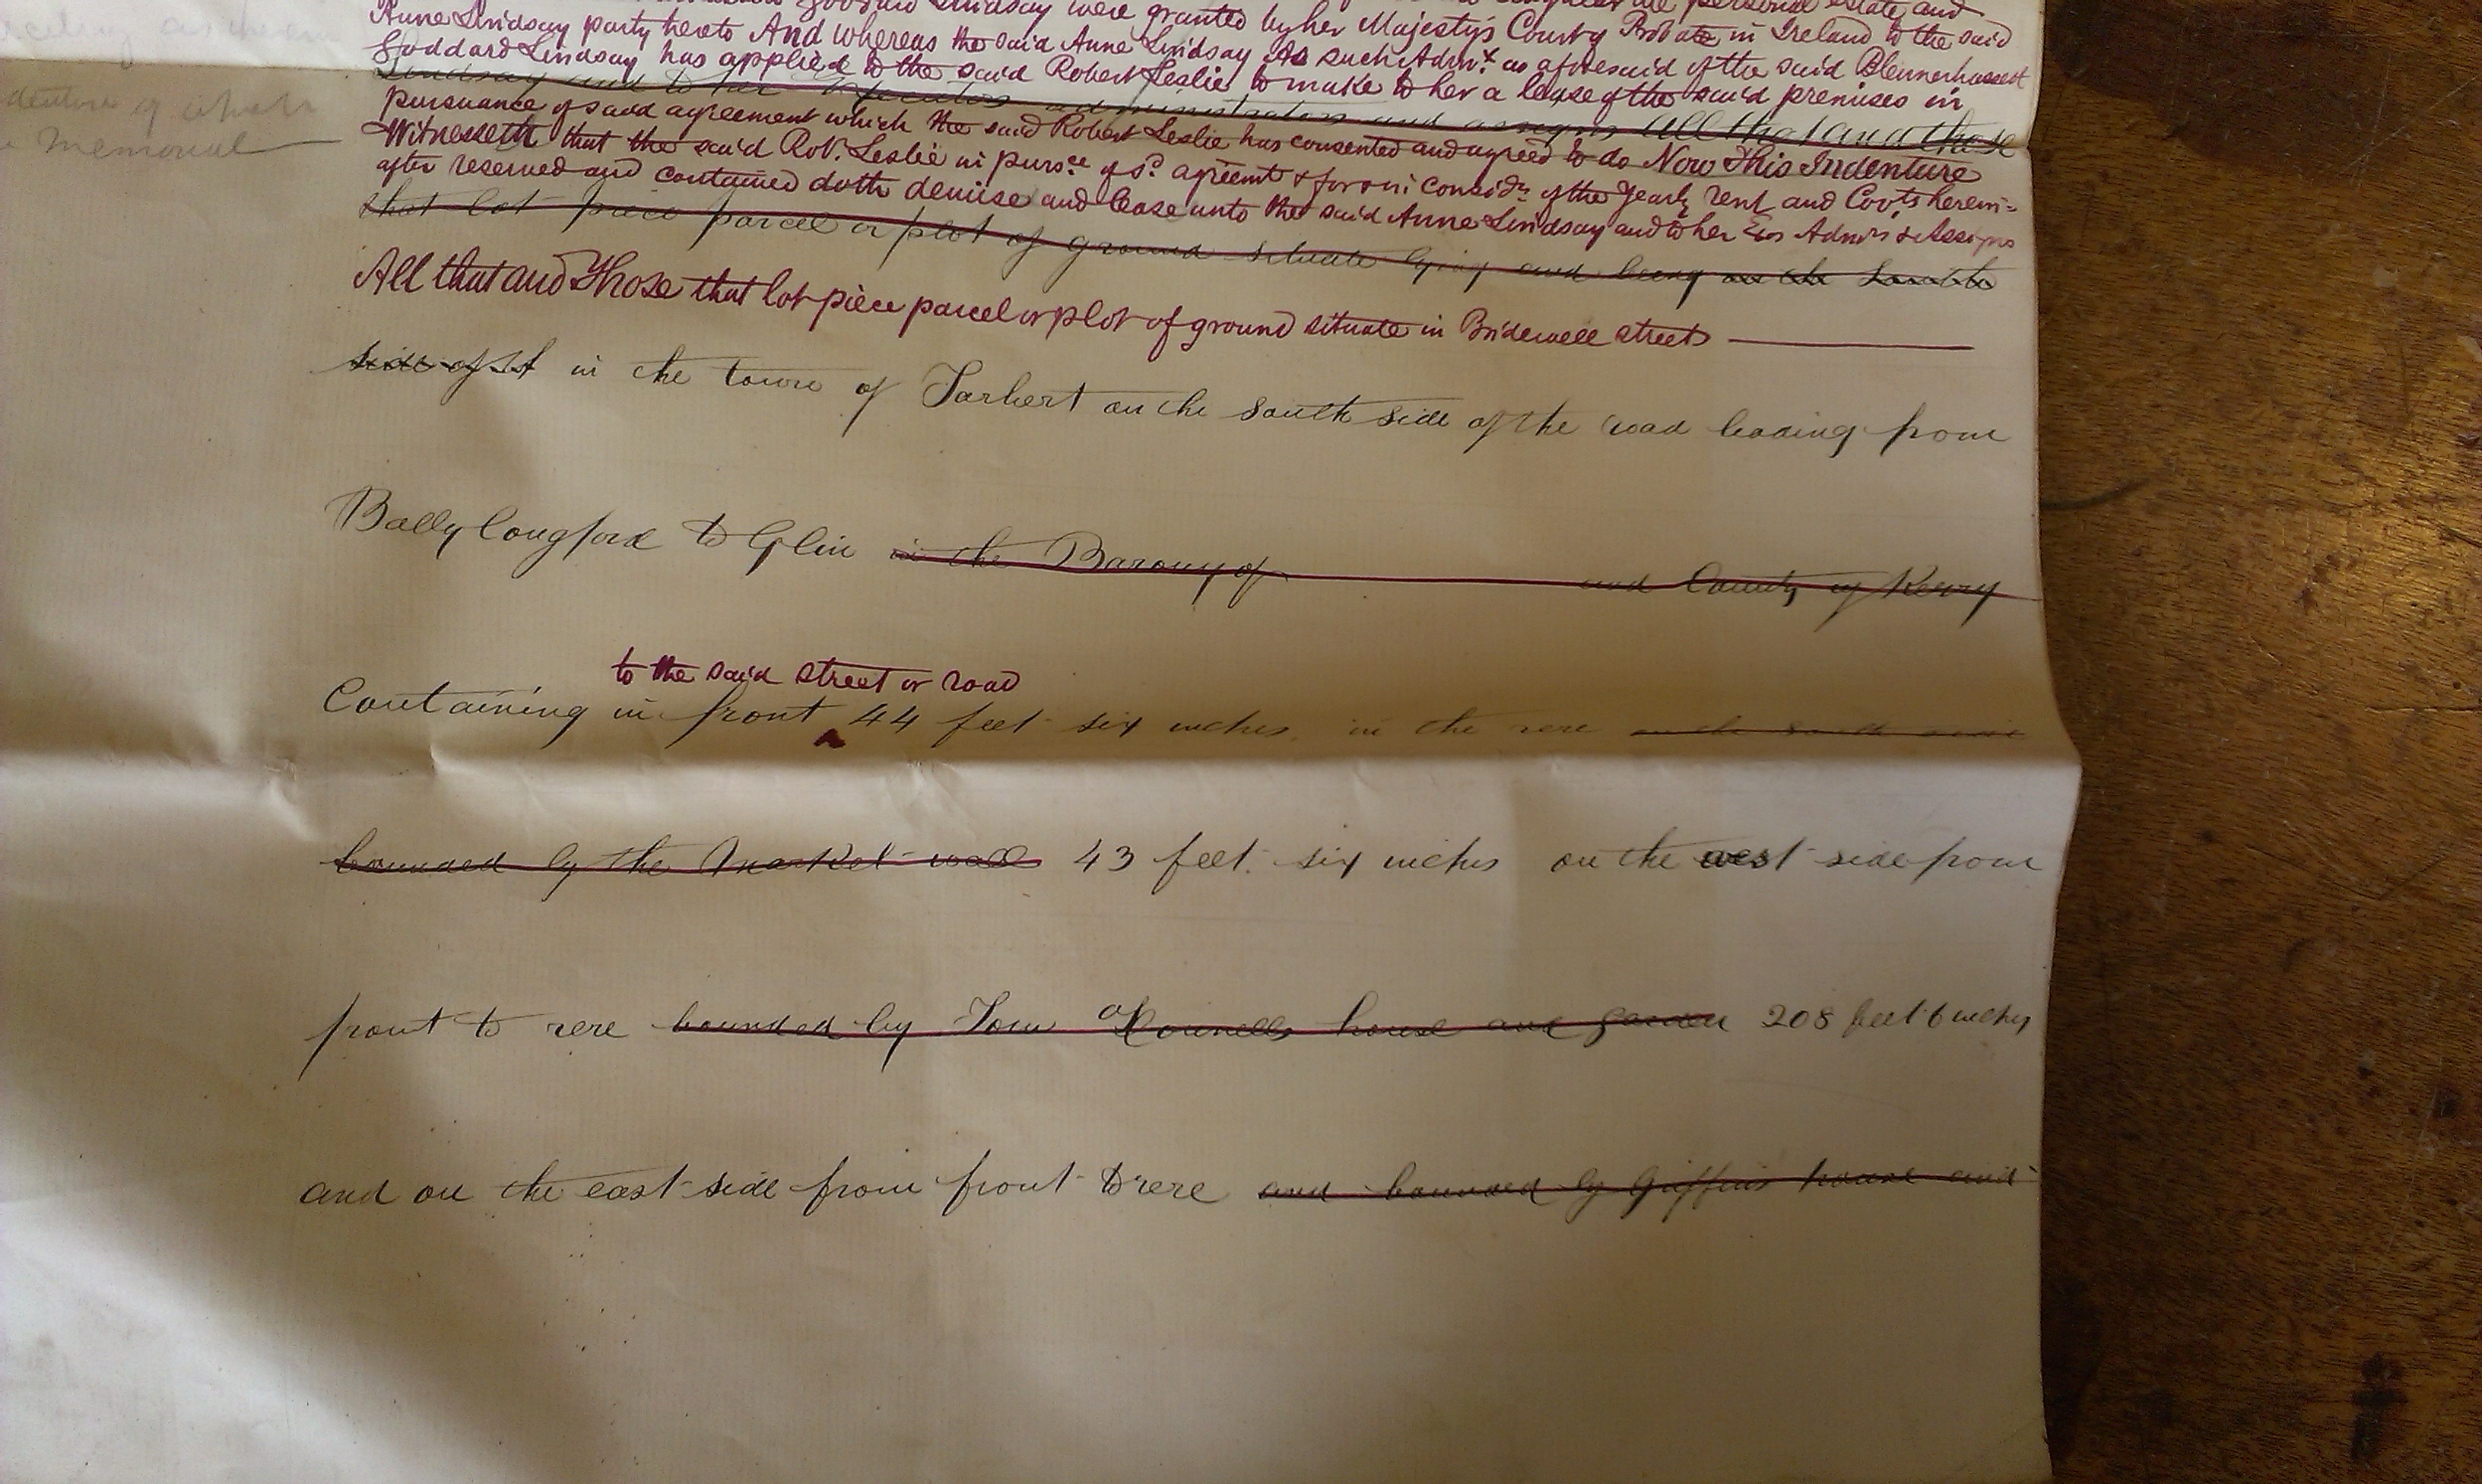 Goddard Lindsay were granted by her Majesty's Court of Probate in Ireland to the said
personal estate and
Anne Lindsay party hereto And whereas the said Anne Lindsay As such Admx. as aforesaid of the said Blennerhassett
Goddard Lindsay has applied to the said Robert Leslie to make to her a lease of the said premises in
Lindsay and to her Executors administrators and assigns All that and those
pursuance of said agreement which the said Robert Leslie has consented and agreed to do Now This Indenture
Witnesseth that the said Robt. Leslie in pursce. of sd. agreemt & for & in considn. of the Yearly rent and Covts herein=
after reserved and contained doth demise and lease unto the said Anne Lindsay and to her Exs Admrs & Assigns
that lot piece parcel or plot of ground situate lying and being on the South
All that and Those that lot piece parcel or plot of ground situate in Bridewell street
side of St in the town of Tarbert on the south side of the road leading from
Ballylongford to Glin in the Barony of and County of Kerry
to the said street or road
Containing in front 44 feet six inches in the rere on the south side
bounded by the Market wall 43 feet six inches on the west side from
front to rere bounded by Tom O'Connells house and garden 208 feet 6 inches
and on the east side from front to rere and bounded by Griffins house and
denture of which
a Memorial